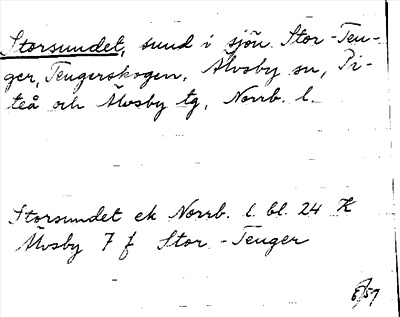 Storsundet, sund i sjön Stor-Teu-
ger, Teugerskogen, Älvsby sn, Pi-
teå och Älvsby tg, Norrb. l.
Storsundet ek Norrb. l. bl. 24 K
Älvsby 7 f Stor-Teuger